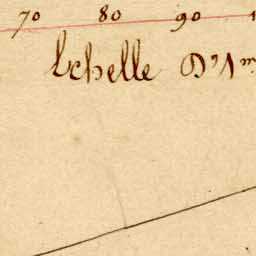 70 80 90
Echelle D'1m